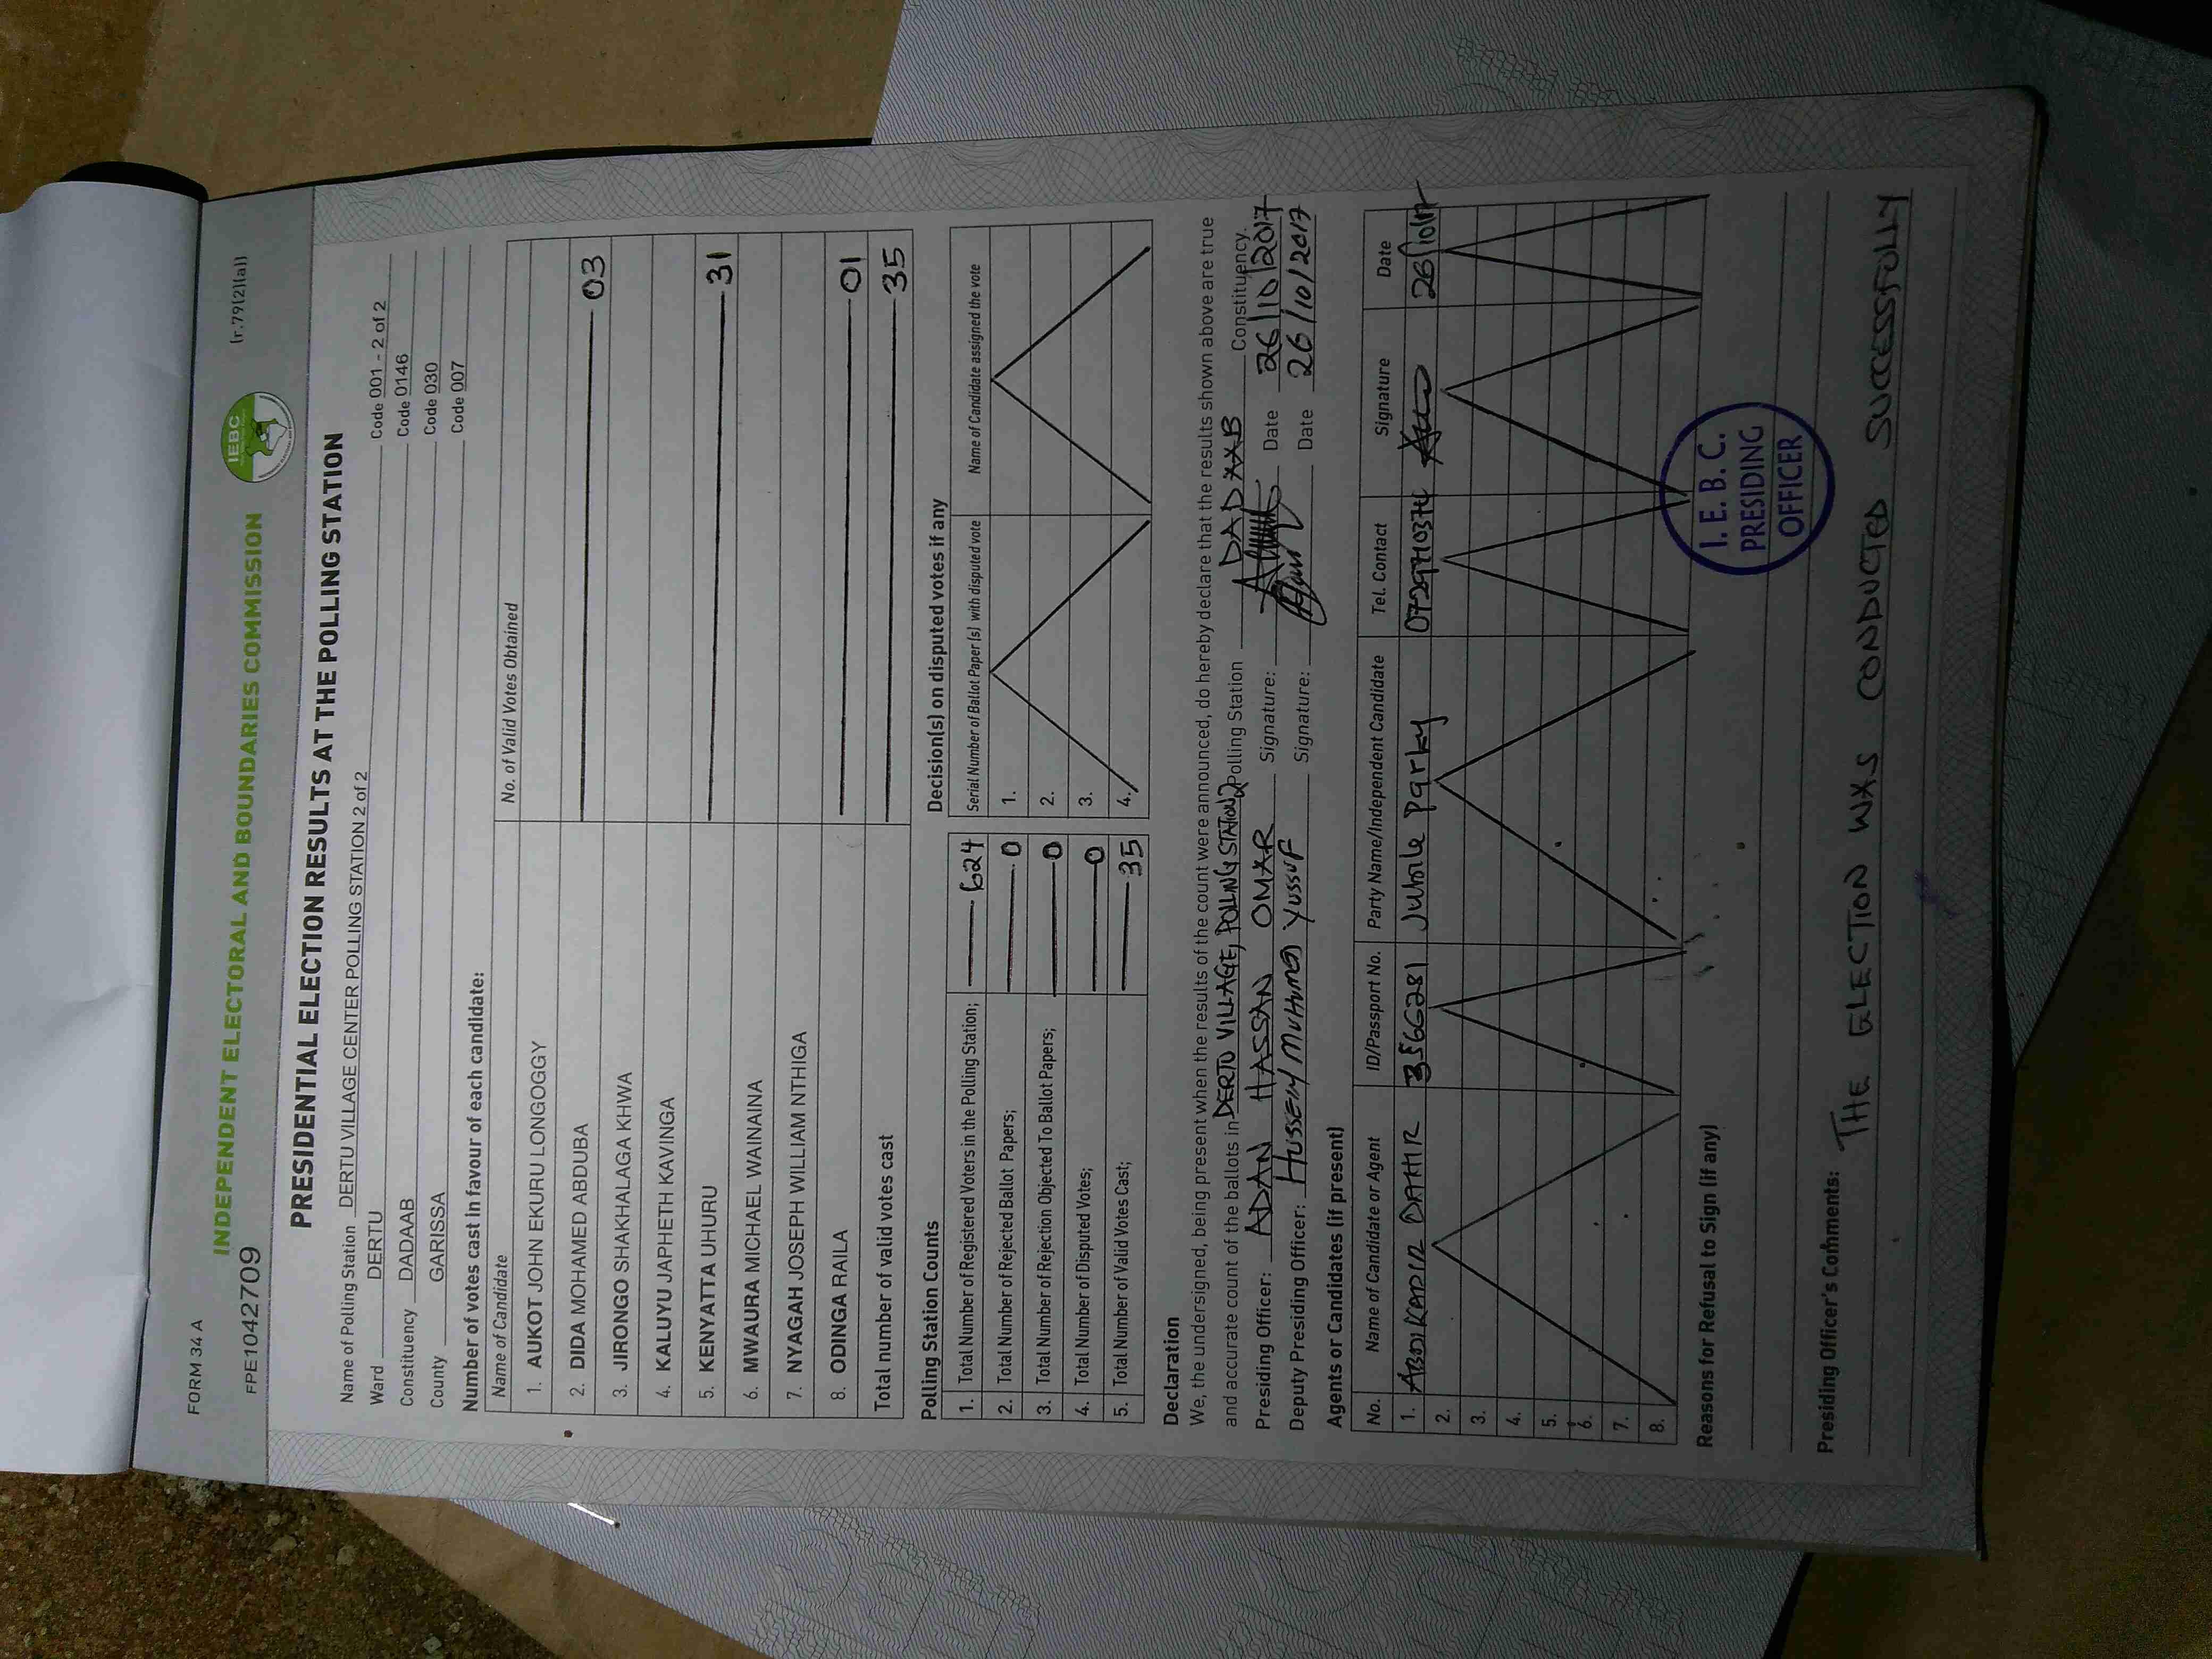 FORM 34 A
(r.79(2)(a))
FPE1042709
INDEPENDENT ELECTORAL AND BOUNDARIES COMMISSION
IEBC
PRESIDENTIAL ELECTION RESULTS AT THE POLLING STATION
Name of Polling Station DERTU VILLAGE CENTER POLLING STATION 2 of 2 Code 001 - 2 of 2
Ward DERTU Code 0146
Constituency DADAAB Code 030
County GARISSA Code 007
Number of votes cast in favour of each candidate:
Name of Candidate No. of Valid Votes Obtained
1. AUKOT JOHN EKURU LONGOGGY
2. DIDA MOHAMED ABDUBA 03
3. JIRONGO SHAKHALAGA KHWA
4. KALUYU JAPHETH KAVINGA
5. KENYATTA UHURU 31
6. MWAURA MICHAEL WAINAINA
7. NYAGAH JOSEPH WILLIAM NTHIGA
8. ODINGA RAILA 01
Total number of valid votes cast 35
Polling Station Counts Decision(s) on disputed votes if any
1. Total Number of Registered Voters in the Polling Station; 624 Serial Number of Ballot Paper (s) with disputed vote Name of Candidate assigned the vote
2. Total Number of Rejected Ballot Papers; 0 1.
3. Total Number of Rejection Objected To Ballot Papers; 0 2.
4. Total Number of Disputed Votes; 0 3.
5. Total Number of Valid Votes Cast; 35 4.
Declaration
We, the undersigned, being present when the results of the count were announced, do hereby declare that the results shown above are true
and accurate count of the ballots in DERTU VILLAGE, POLLING STATION 2 Polling Station DADAAB Constituency.
Presiding Officer: ADAN HASSAN OMAR Signature: Date 26/10/2017
Deputy Presiding Officer: HUSSEIN MUHUMED YUSSUF Signature: Date 26/10/2017
Agents or Candidates (if present)
No. Name of Candidate or Agent ID/Passport No. Party Name/Independent Candidate Tel. Contact Signature Date
1. ABDIKADIR DAHIR Jubile Party 26/10/17
2.
3.
4.
5.
6.
7.
8.
Reasons for Refusal to Sign (if any)
I.E.B.C.
PRESIDING
OFFICER
Presiding Officer's Comments: THE ELECTION WAS CONDUCTED SUCCESSFULLY